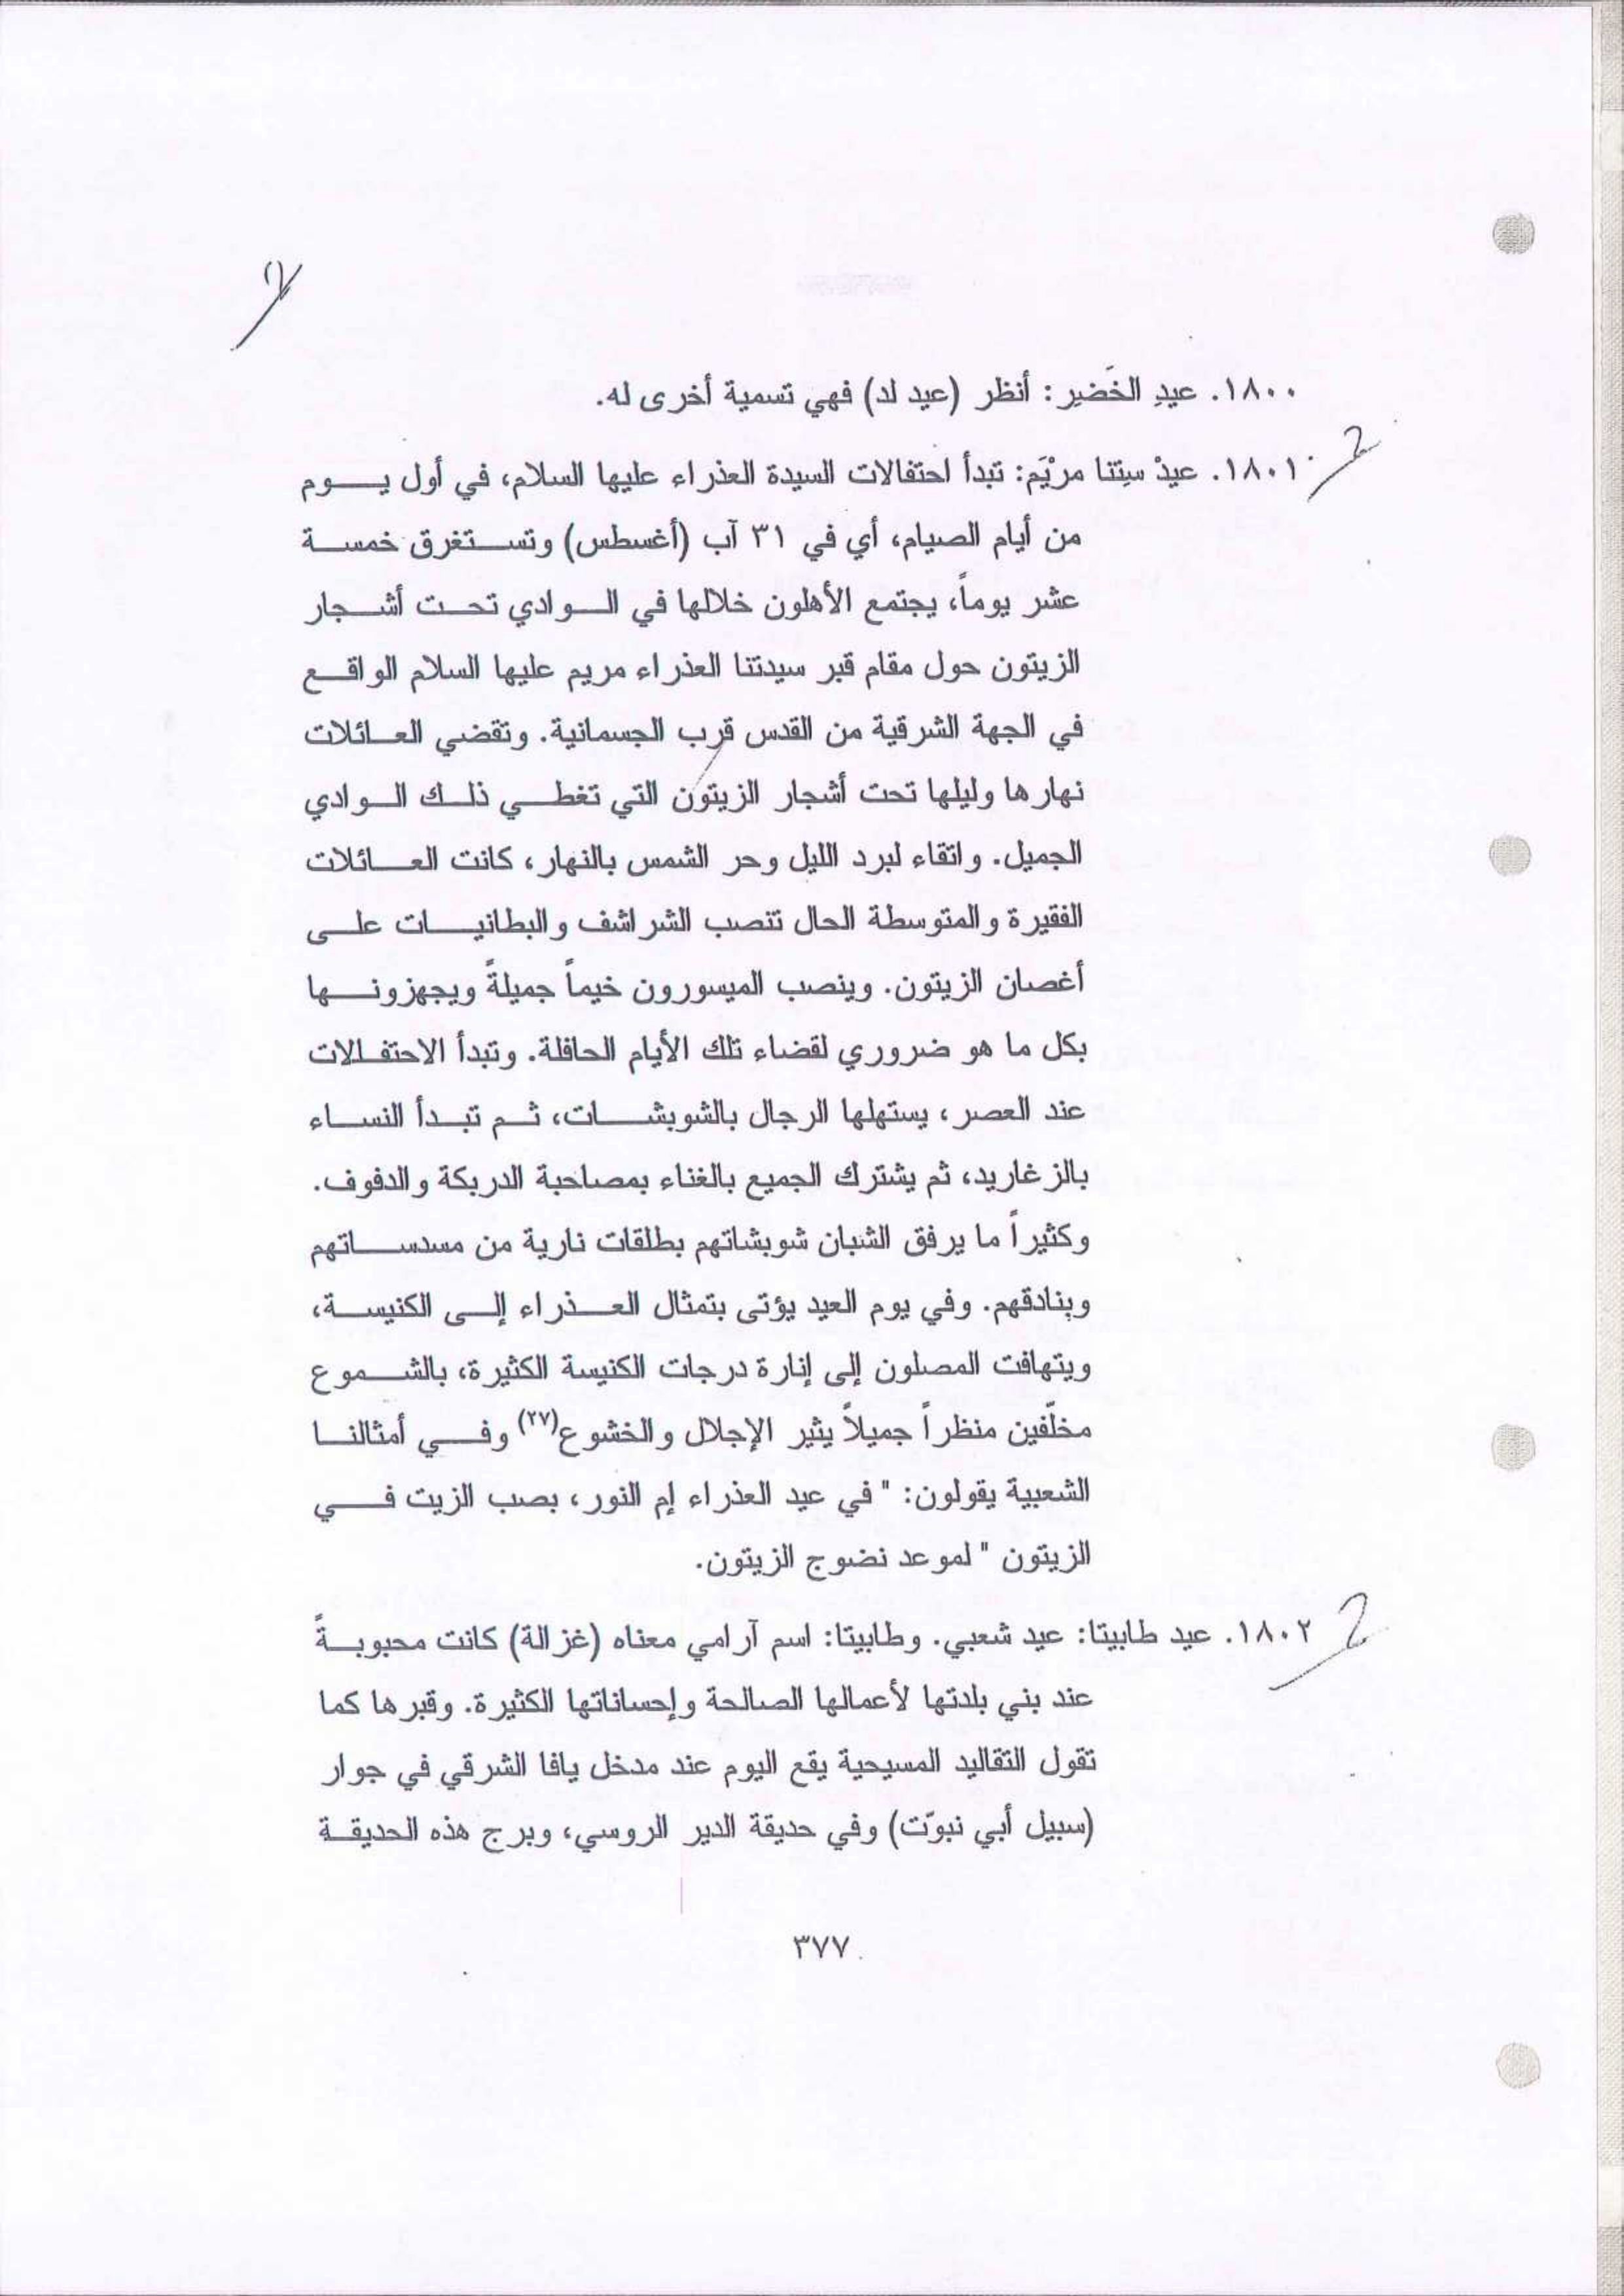 ١٨٠٠. عيدِ الخَضير: أنظر (عيد لد) فهي تسمية أخرى له.
١٨٠١. عيدْ سِتِنا مرْيَم: تبدأ احتفالات السيدة العذراء عليها السلام، في أول يوم
من أيام الصيام، أي في ٣١ آب (أغسطس) وتستغرق خمسة
عشر يوماً، يجتمع الأهلون خلالها في الوادي تحت أشجار
الزيتون حول مقام قبر سيدتنا العذراء مريم عليها السلام الواقع
في الجهة الشرقية من القدس قرب الجسمانية. وتقضي العائلات
نهارها وليلها تحت أشجار الزيتون التي تغطي ذلك الوادي
الجميل. واتقاء لبرد الليل وحر الشمس بالنهار، كانت العائلات
الفقيرة والمتوسطة الحال تنصب الشراشف والبطانيات على
أغصان الزيتون. وينصب الميسورون خيماً جميلةً ويجهزونها
بكل ما هو ضروري لقضاء تلك الأيام الحافلة. وتبدأ الاحتفالات
عند العصر، يستهلها الرجال بالشوبشات، ثم تبدأ النساء
بالزغاريد، ثم يشترك الجميع بالغناء بمصاحبة الدربكة والدفوف.
وكثيراً ما يرفق الشبان شوبشاتهم بطلقات نارية من مسدساتهم
وبنادقهم. وفي يوم العيد يؤتى بتمثال العذراء إلى الكنيسة،
ويتهافت المصلون إلى إنارة درجات الكنيسة الكثيرة، بالشموع
مخلّفين منظراً جميلاً يثير الإجلال والخشوع(٢٧) وفي أمثالنا
الشعبية يقولون: " في عيد العذراء إم النور، بصب الزيت في
الزيتون " لموعد نضوج الزيتون.
١٨٠٢. عيد طابيتا: عيد شعبي. وطابيتا: اسم آرامي معناه (غزالة) كانت محبوبةً
عند بني بلدتها لأعمالها الصالحة وإحساناتها الكثيرة. وقبرها كما
تقول التقاليد المسيحية يقع اليوم عند مدخل يافا الشرقي في جوار
(سبيل أبي نبوّت) وفي حديقة الدير الروسي، وبرج هذه الحديقة
٣٧٧